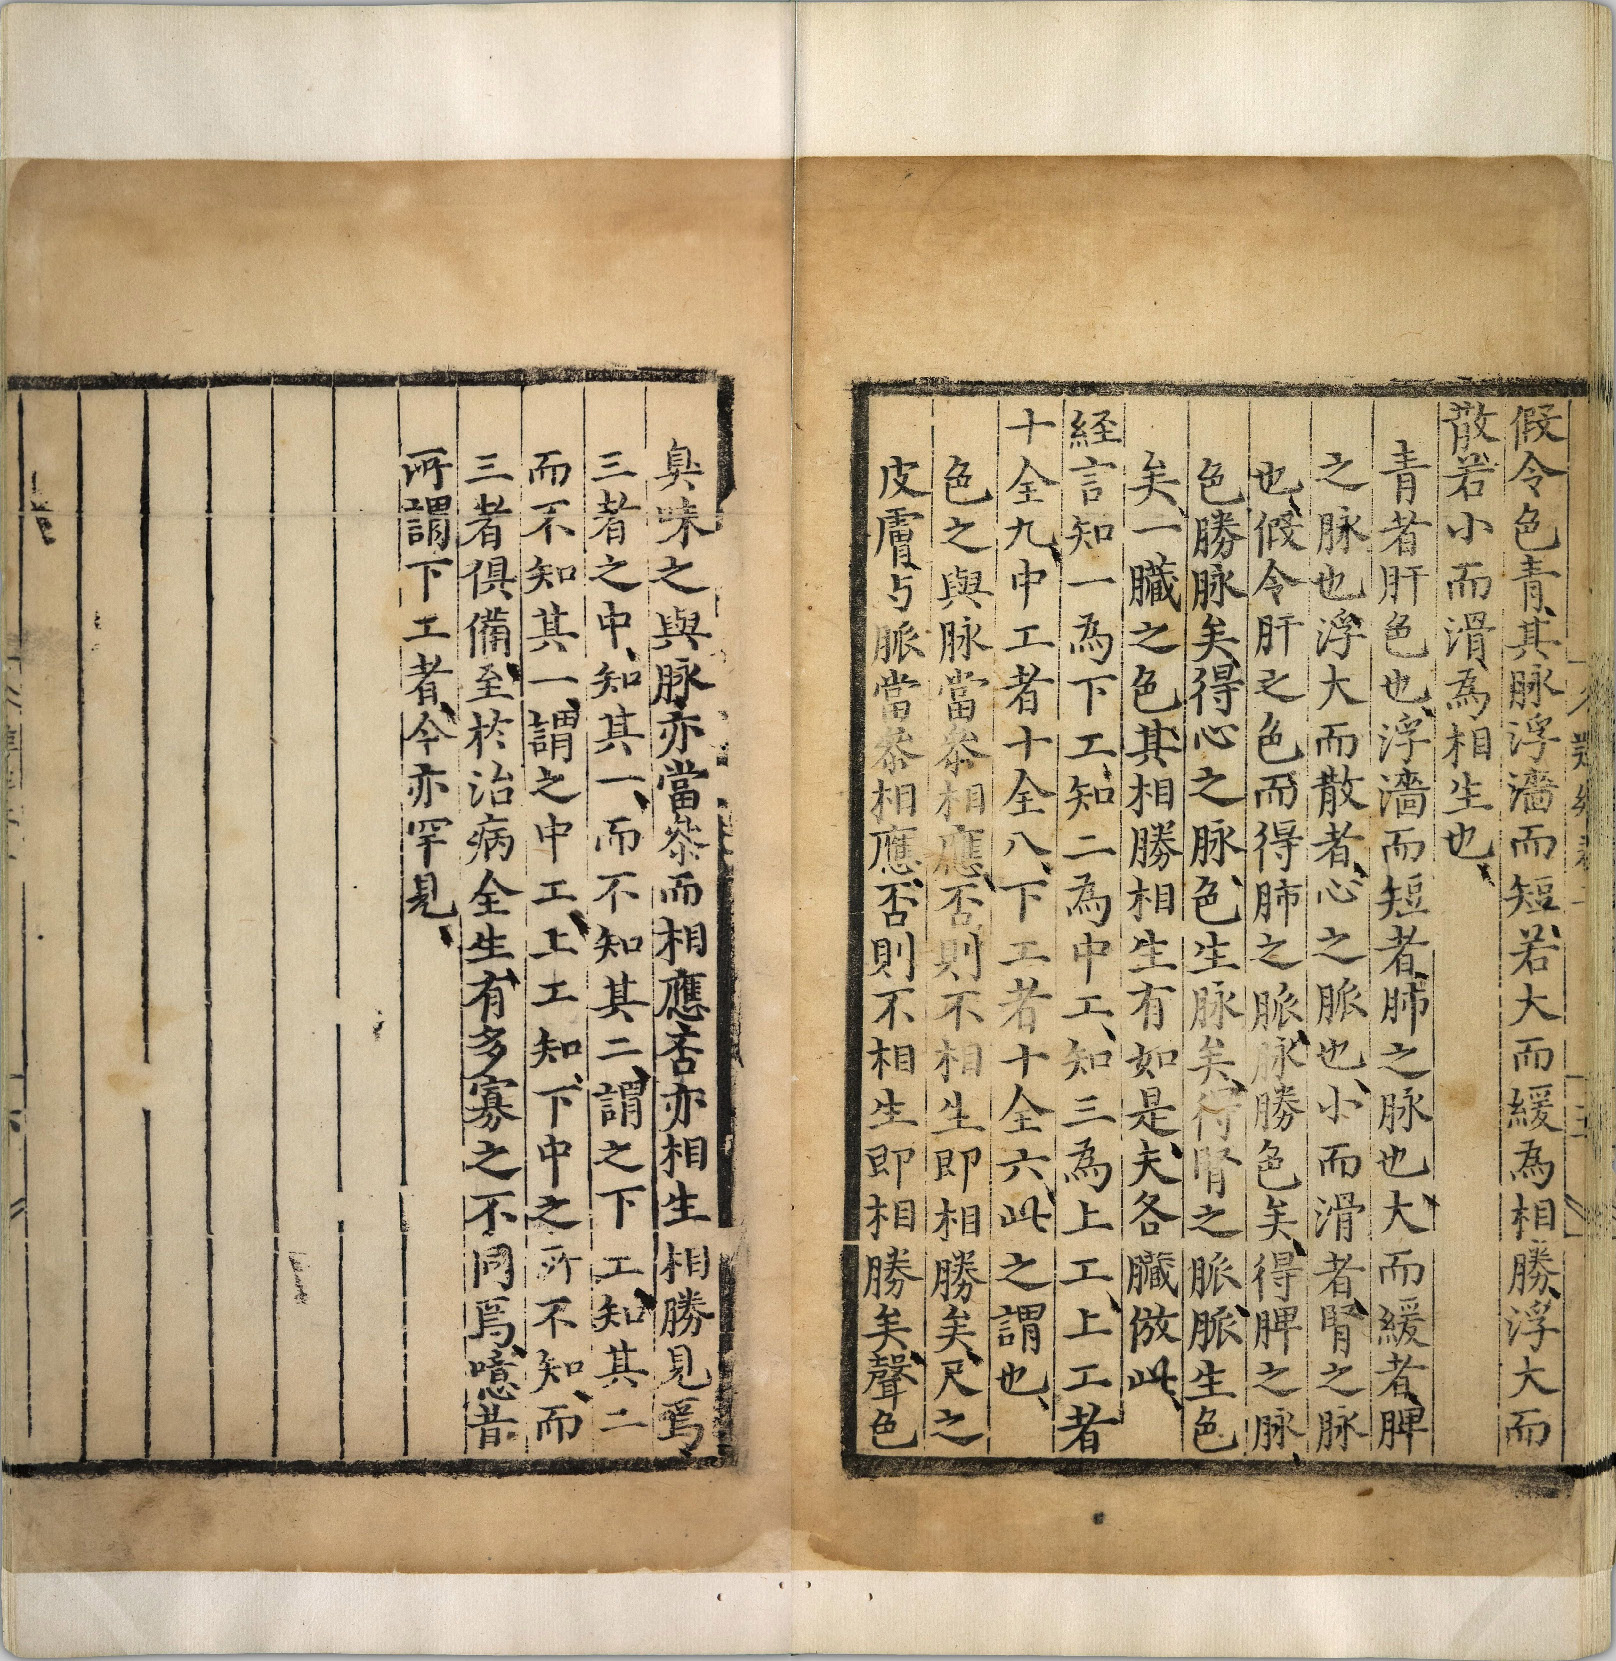 假令色青其脉浮濇而短若大而緩為相勝浮大而
散若小而滑為相生也
青者肝色也浮濇而短者肺之脉也大而緩者脾
之脉也浮大而散者心之脈也小而滑者腎之脉
也假令肝之色而得肺之脈脉勝色矣得脾之脉
色勝脉矣得心之脉色生脉矣得腎之脈脈生色
矣一臟之色其相勝相生有如是夫各臟倣此
経言知一為下工知二為中工知三為上工上工者
十全九中工者十全八下工者十全六此之謂也
色之與脉當叅相應否則不相生即相勝矣尺之
皮膚与脈當叅相應否則不相生即相勝矣聲色
臭味之與脉亦當叅而相應否亦相生相勝見焉
三者之中知其一而不知其二謂之下工知其二
而不知其一謂之中工上工知下中之所不知而
三者俱備至於治病全生有多寡之不同焉噫昔
所謂下工者今亦罕見